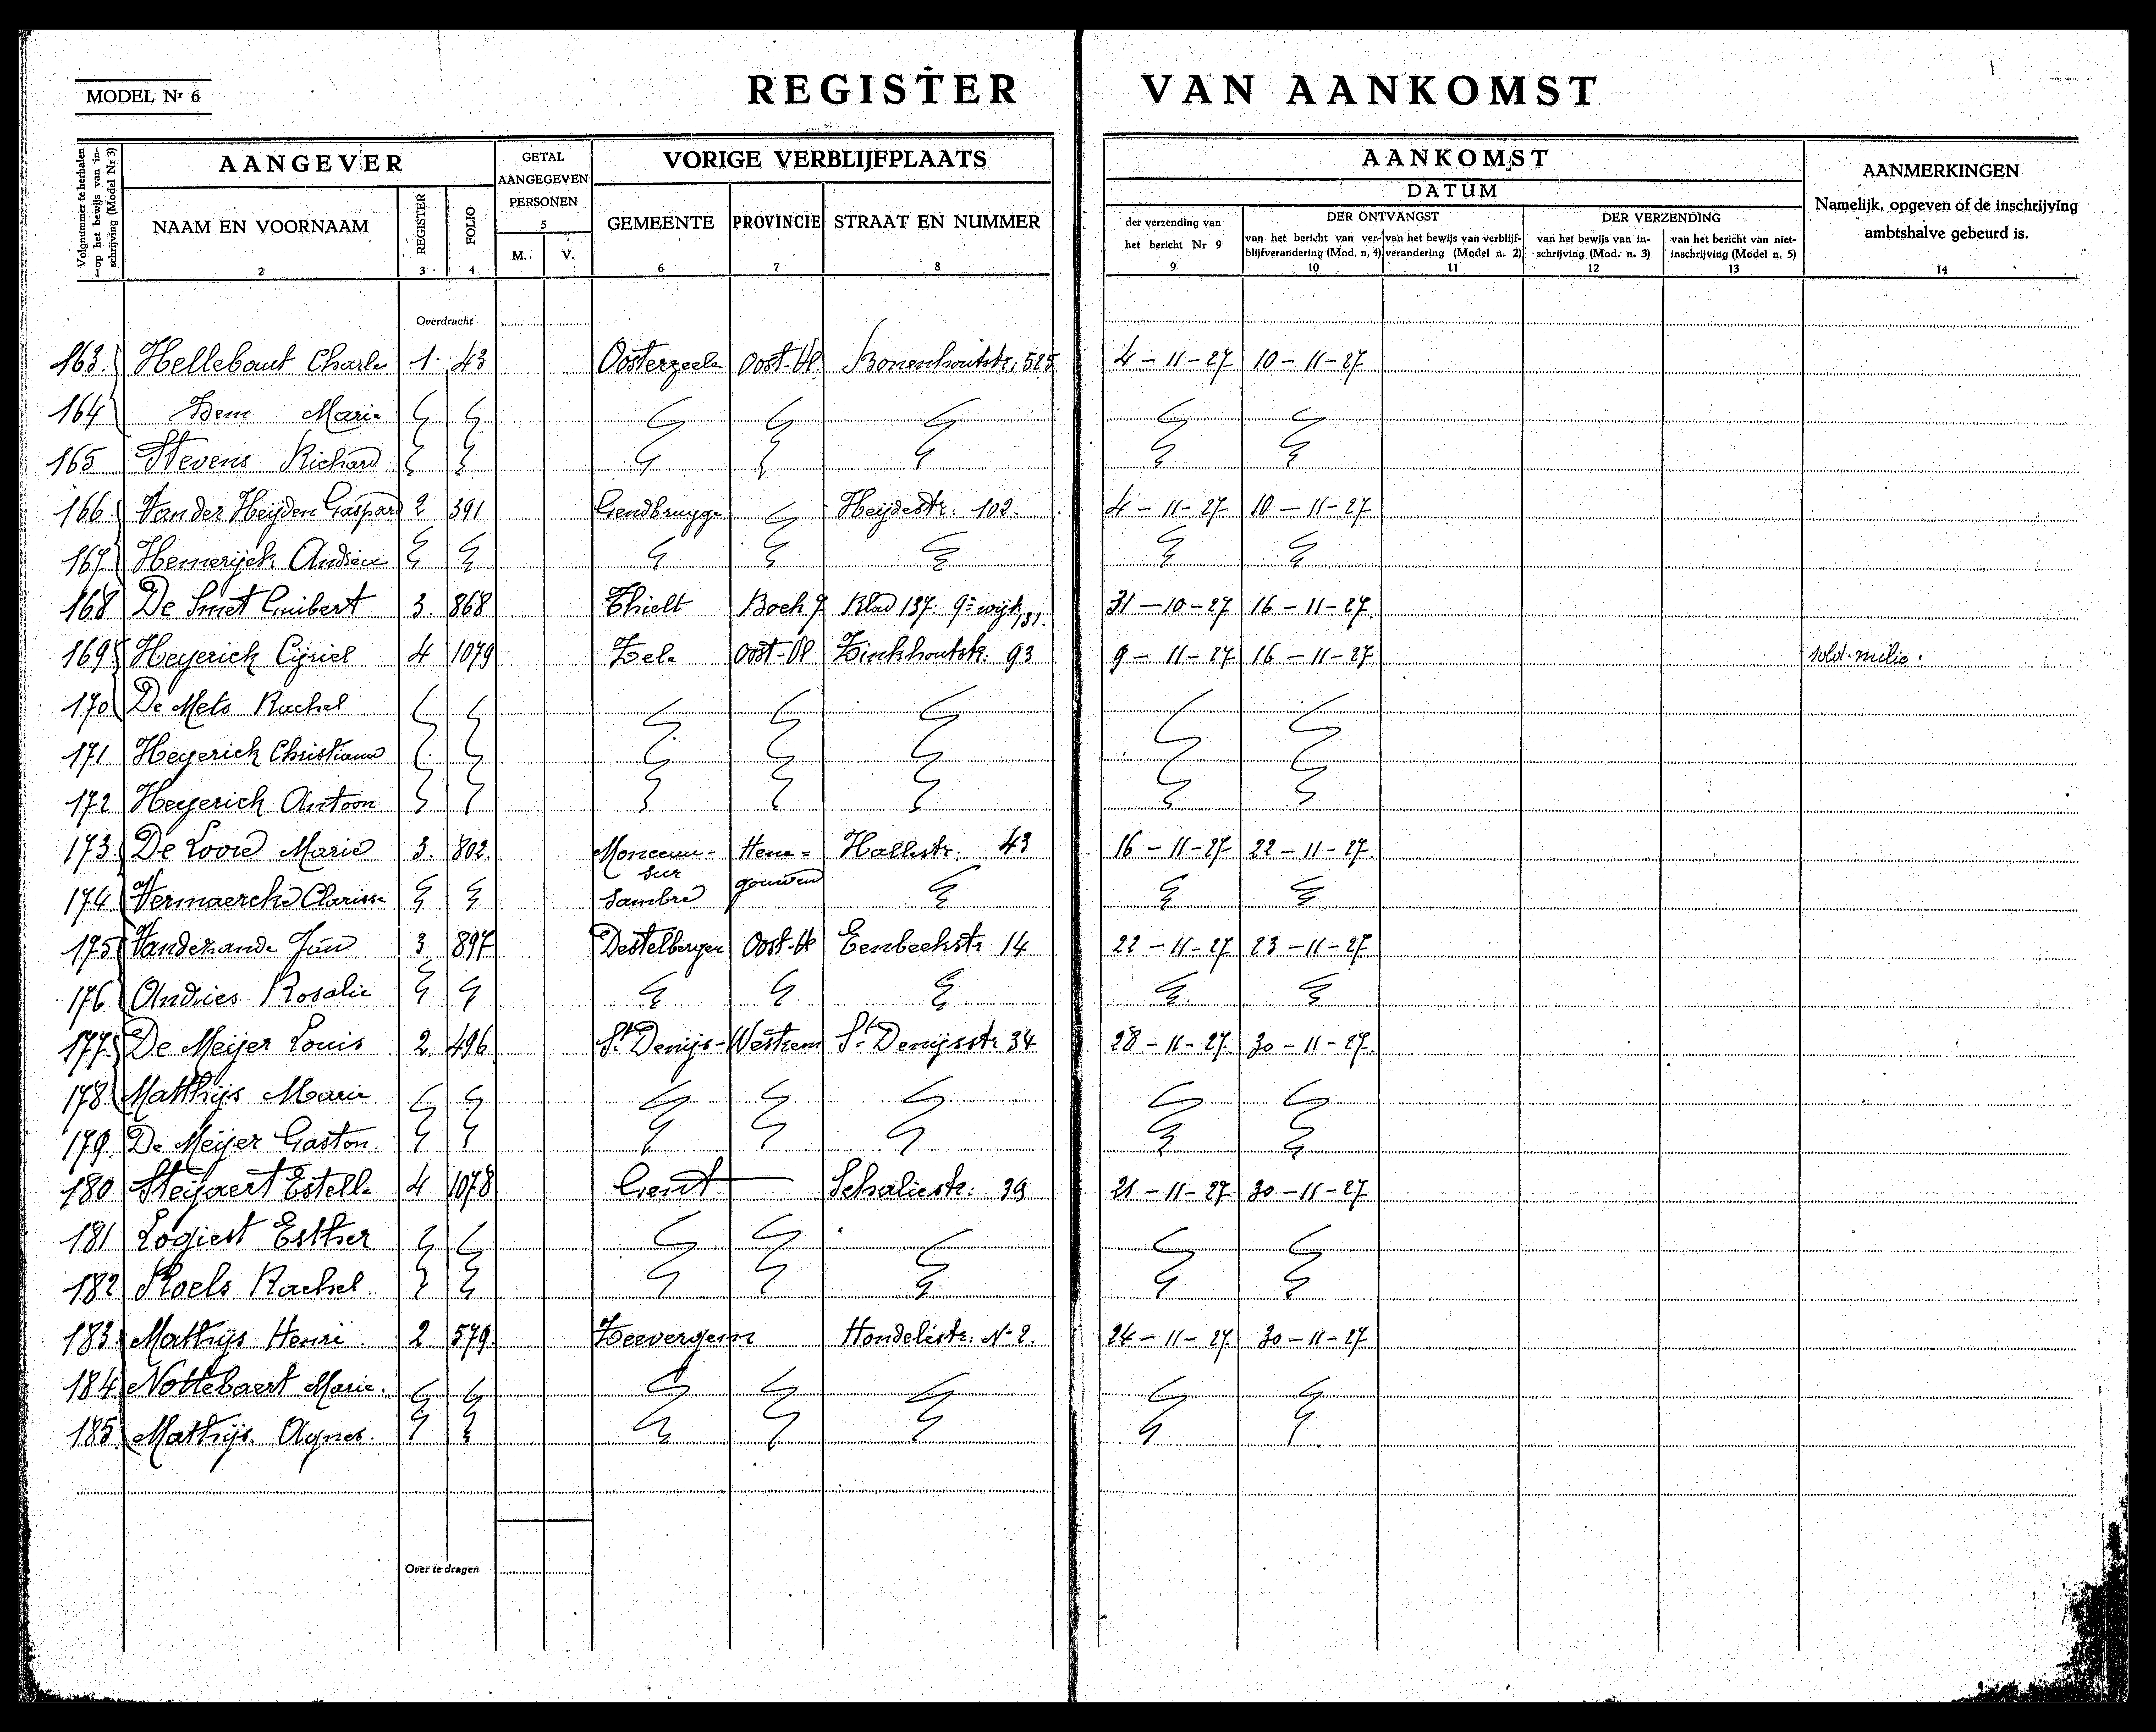 MODEL Nr 6
REGISTER VAN AANKOMST
Volgnummer te herhalen op het bewijs van inschrijving (Model Nr 3)
AANGEVER
GETAL AANGEGEVEN PERSONEN
VORIGE VERBLIJFPLAATS
AANKOMST
AANMERKINGEN
Namelijk, opgeven of de inschrijving ambtshalve gebeurd is.
DATUM
NAAM EN VOORNAAM
REGISTER
FOLIO
M. V.
GEMEENTE
PROVINCIE
STRAAT EN NUMMER
der verzending van het bericht Nr 9
DER ONTVANGST
van het bericht van verblijfverandering (Mod. n. 4)
van het bewijs van verblijfverandering (Model n. 2)
DER VERZENDING
van het bewijs van inschrijving (Mod. n. 3)
van het bericht van niet-inschrijving (Model n. 5)
1 2 3 4 5 6 7 8 9 10 11 12 13 14
Overdracht
163. Hellebaut Charles 1. 43 Oosterzeele Oost-Vl. 525 4-11-27 10-11-27
164 Marie
165 Stevens Richard
166. Van der Heijden Gaspard 2 391 Gendbrugge Heijdestr. 102. 4-11-27 10-11-27
167. Hemerijck
168 De Smet 3. 868 Thielt Boek 7 Blad 137: 9e wijk, 131. 31-10-27 16-11-27
169 Heyerick Cijriel 4 1079 Zele Oost-Vl 93 9-11-27 16-11-27 sold. milic.
170 De Mets Rachel
171 Heyerick Christiana
172 Heyerick Antoon
173. De Loore Marie 3. 802. Monceau-sur Sambre Hene=gouwen Hallestr. 43 16-11-27 22-11-27
174 Vermaercke Clarisse
175 Vandezande Jan 3 897 Destelbergen Oost-Vl Eenbeekstr 14 22-11-27 23-11-27
176 Andries Rosalie
177. De Meijer Louis 2. 496 St Denijs-Westrem St Denijsstr 34 28-11-27 30-11-27
178 Matthijs Marie
179. De Meijer Gaston.
180 Steijaert Estelle 4 1078 Gent Schaliestr: 39 21-11-27 30-11-27
181 Logiest Esther
182 Roels Rachel.
183. Matthijs Henri. 2 579. Zeevergem Hondelestr: No 2. 24-11-27 30-11-27
184 Nottebaert Marie.
185 Matthijs. Agnes.
Over te dragen